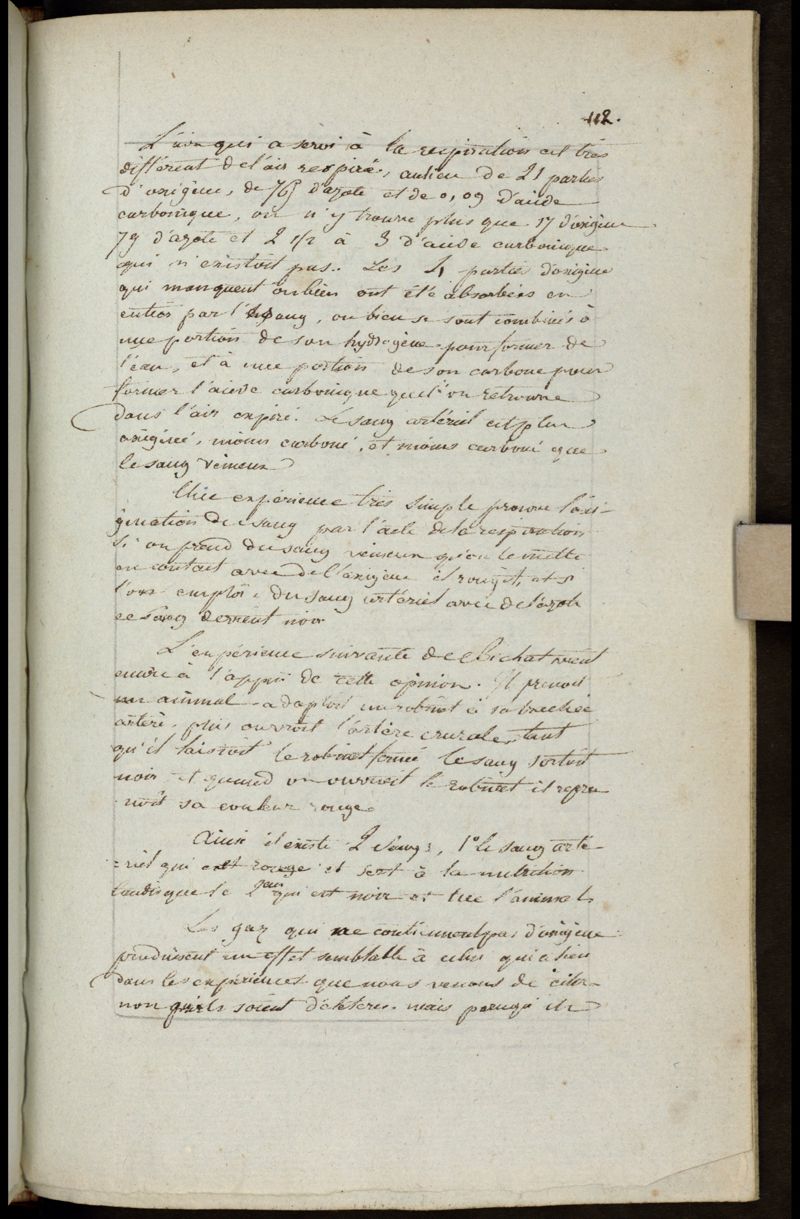 112.
L'air qui a servi à la respiration est très
différent de l'air respiré, aulieu de 21 parties
d'oxigène, de 769 d'azote et de 0,09 d'acide
carbonique, on n'y trouve plus que 17 d'oxigène
79 d'azote et 2 1/2 à 3 d'acide carbonique
qui n'existoit pas. Les 4 parties d'oxigène
qui manquent oubien ont été absorbées en
entier par le sang, ou bien se sont combinés à
une portion de son hydrogène pour former de
l'eau, et à une portion de son carbone pour
former l'acide carbonique que l'on retrouve
dans l'air expiré. Le sang artériel est plus
oxigéné, moins carboné, et moins carboné que
le sang veineux
Une expérience très simple prouve l'oxi-
génation du sang par l'acte de la respiration
Si on prend du sang veineux qu'on le mette
en contact avec de l'oxigène il rougit, et si
l'on emploie du sang artériel avec de l'azote
ce sang devient noir
L'expérience suivante de Bichat vient
encore à l'appui de cette opinion. Il prenoit
un animal adaptoit un robinet à sa trachée
artère, puis ouvroit l'artère crurale, tant
qu'il laissoit le robinet fermé le sang sortoit
noir et quand on ouvroit le robinet il repre
noit sa couleur rouge
Ainsi il existe 2 sangs, 1° le sang arté-
riel qui est rouge et sert à la nutrition
tandisque le 2eme qui est noir et tue l'animal
Les gaz qui ne contiennent pas d'oxigène
produisent un effet semblable à celui qui a lieu
dans les expériences que nous venons de citer
non qu'ils soient délétères mais parcequ'ils